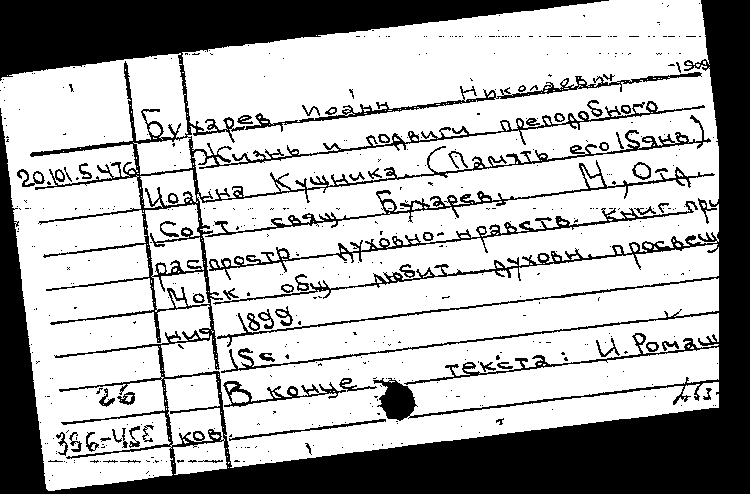 -1909
Бухарев, Иоанн Николаевич,
20.101.5.476
Жизнь и подвиги преподобного
Иоанна Кущника. (Память его 15 янв.)
[Сост. свящ. Бухарев]. М., Отд.
распростр. духовно-нравств. книг при
Моск. общ. любит. духовн. просвеще
ния, 1899.
15с.
26
В конце текста: И. Ромаш
ков